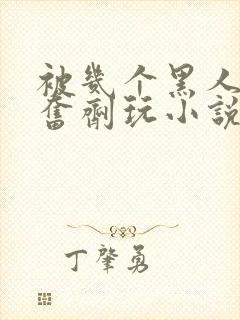 被几个黑人
奮劑玩小說
丁肇勇